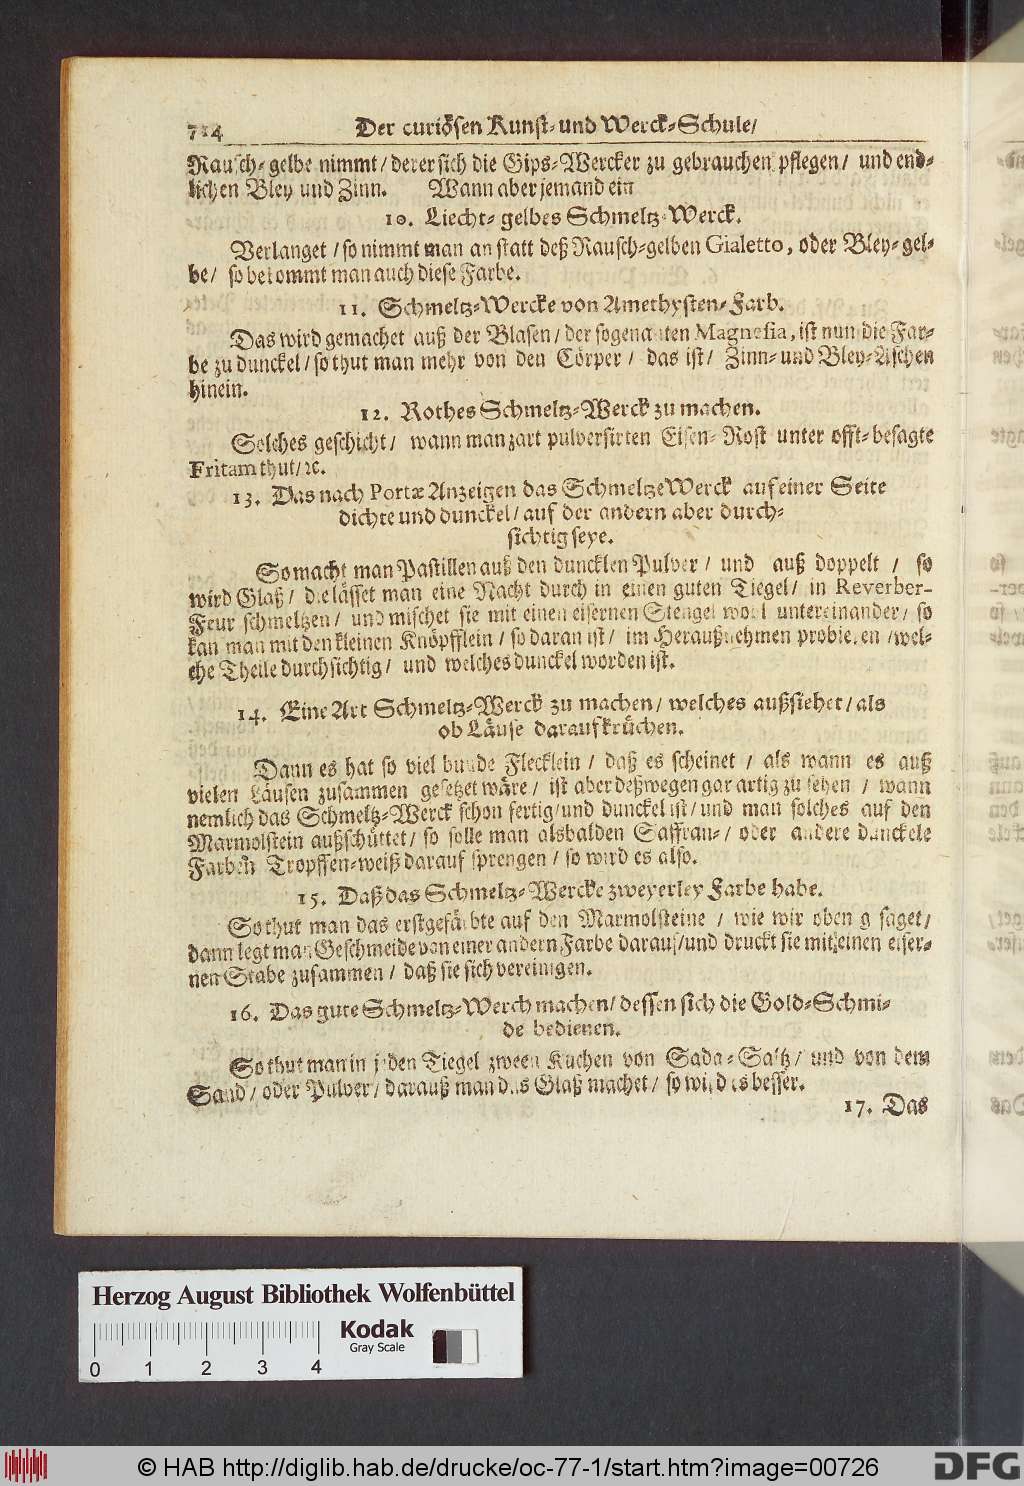 714 Der curiösen Kunst- und Werck-Schule/
Rausch-gelbe nimmt/ derer sich die Gips-Wercker zu gebrauchen pflegen/ und end-
lichen Bley und Zinn. Wann aber jemand ein
10. Liecht-gelbes Schmeltz-Werck.
Verlanget/ so nimmt man an statt deß Rausch-gelben Gialetto, oder Bley-gel-
be/ so bekommt man auch diese Farbe.
11. Schmeltz-Wercke von Amethysten-Farb.
Das wird gemachet auß der Blasen/ der sogenanten Magnesia, ist nun die Far-
be zu dunckel/ so thut man mehr von den Cörper/ das ist/ Zinn- und Bley-Aschen
hinein.
12. Rothes Schmeltz-Werck zu machen.
Solches geschicht/ wann man zart pulversirten Eisen-Rost unter offt-besagte
Fritam thut/ ꝛc.
13. Das nach Portæ Anzeigen das Schmeltze Werck auf einer Seite
dichte und dunckel/ auf der andern aber durch-
sichtig seye.
So macht man Pastillen auß den duncklen Pulver/ und auß doppelt/ so
wird Glaß/ die lässet man eine Nacht durch in einen guten Tiegel/ in Reverber-
Feur schmeltzen/ und mischet sie mit einen eisernen Stengel wohl untereinander/ so
kan man mit den kleinen Knöpfflein/ so daran ist/ im Heraußnehmen probieren/ wel-
che Theile durchsichtig/ und welches dunckel worden ist.
14. Eine Art Schmeltz-Werck zu machen/ welches außsiehet/ als
ob Läuse darauf krüchen.
Dann es hat so viel bunde Flecklein/ daß es scheinet/ als wann es auß
vielen Läusen zusammen gesetzet wäre/ ist aber deßwegen gar artig zu sehen/ wann
nemlich das Schmeltz-Werck schon fertig/ und dunckel ist/ und man solches auf den
Marmolstein außschüttet/ so solle man alsbalden Saffran-/ oder andere dunckele
Farben Tropffen-weiß darauf sprengen/ so wird es also.
15. Daß das Schmeltz-Wercke zweyerley Farbe habe.
So thut man das erstgefärbte auf den Marmolsteine/ wie wir oben gesaget/
dann legt man Geschmeide von einer andern Farbe darauf/ und druckt sie mit einen eiser-
nen Stabe zusammen/ daß sie sich vereinigen.
16. Das gute Schmeltz-Werch machen/ dessen sich die Gold-Schmi-
de bedienen.
So thut man in jeden Tiegel zween Kuchen von Sada-Saltz/ und von dem
Sand/ oder Pulver/ darauß man das Glaß machet/ so wird es besser.
17. Das
Herzog August Bibliothek Wolfenbüttel
Kodak
Gray Scale
0 1 2 3 4
© HAB http://diglib.hab.de/drucke/oc-77-1/start.htm?image=00726
DFG